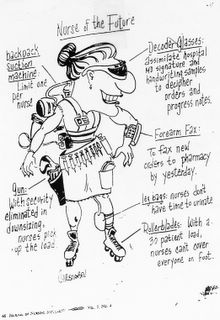 Nurse of the Future
backpack
suction
machine:
Limit one
per
nurse
Decoder Glasses:
assimilate hospital
MD signature and
handwriting samples
to decipher
orders and
progress notes.
Forearm Fax:
To fax new
orders to pharmacy
by yesterday.
Gun:
With security
eliminated in
downsizing,
nurses pick
up the load.
leg bags: nurses don't
have time to urinate
Rollerblades: With a
30 patient load,
nurses can't cover
everyone on foot.
JOURNAL OF NURSING
VOL.